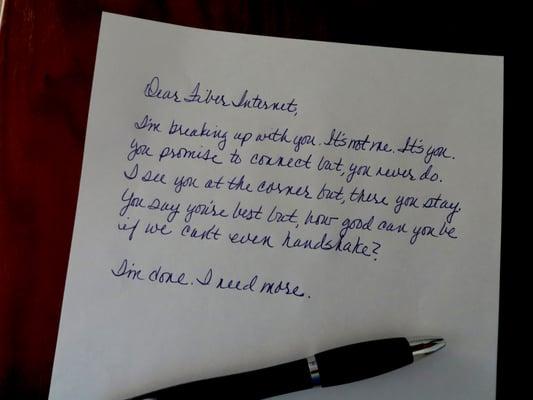 Dear Fiber Internet,
I'm breaking up with you. It's not me. It's you.
You promise to connect but, you never do.
I see you at the corner but, there you stay.
You say you're best but, how good can you be
if we can't even handshake?
I'm done. I need more.